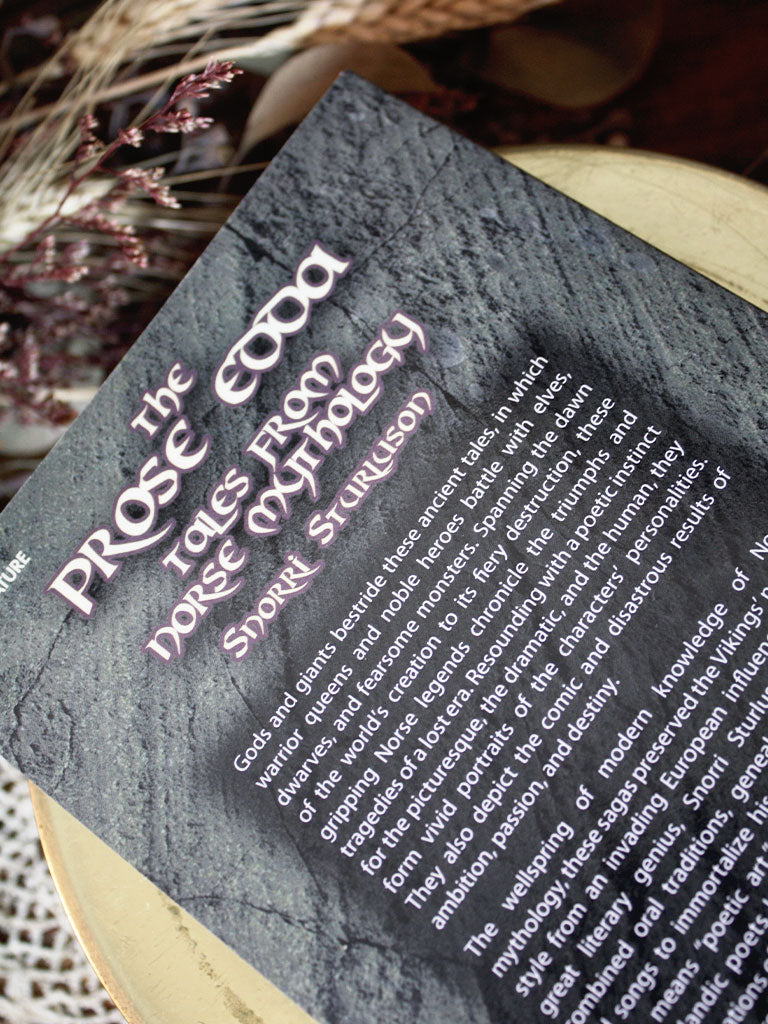 The
PROSE EDDA
TALES FROM
NORSE MYTHOLOGY
Snorri Sturluson
Gods and giants bestride these ancient tales, in which
warrior queens and noble heroes battle with elves,
dwarves, and fearsome monsters. Spanning the dawn
of the world's creation to its fiery destruction, these
gripping Norse legends chronicle the triumphs and
tragedies of a lost era. Resounding with a poetic instinct
for the picturesque, the dramatic, and the human, they
form vivid portraits of the characters' personalities.
They also depict the comic and disastrous results of
ambition, passion, and destiny.
The wellspring of modern knowledge of
mythology, these sagas preserved the Vikings'
style from an invading European
great literary genius, Snorri
oral traditions,
songs to immortalize
means "poetic art"
poets